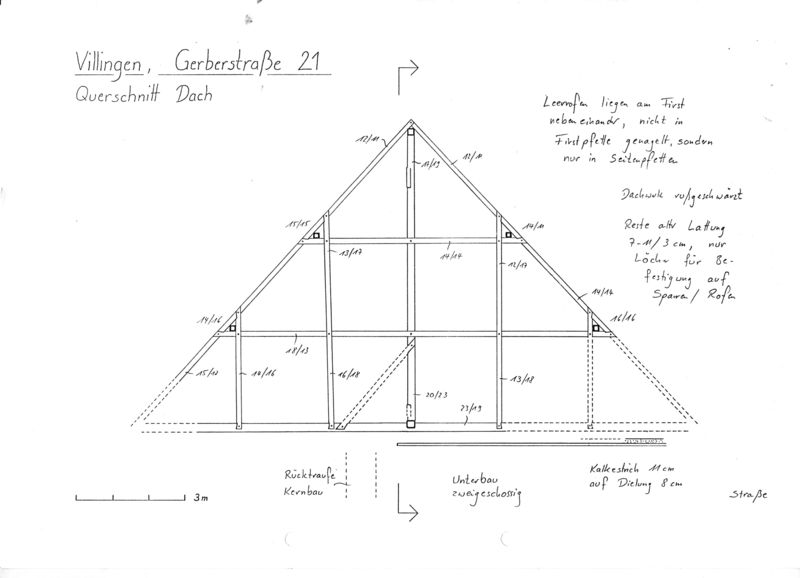 Villingen, Gerberstraße 21
Querschnitt Dach
Leerrofen liegen am First
nebeneinander, nicht in
Firstpfette genagelt, sondern
nur in Seitenpfetten
Dachwerk rußgeschwärzt
Reste alter Lattung
7-11/3 cm, nur
Löcher für Be-
festigung auf
Sparren/Rofen
12/11
12/11
17/19
15/15
14/11
13/17
14/14
12/17
14/14
14/16
16/16
18/13
15/12
14/16
16/18
13/18
20/23
23/19
Rücktraufe
Kernbau
Unterbau
zweigeschossig
Kalkestrich 11 cm
auf Dielung 8 cm
3m
Straße